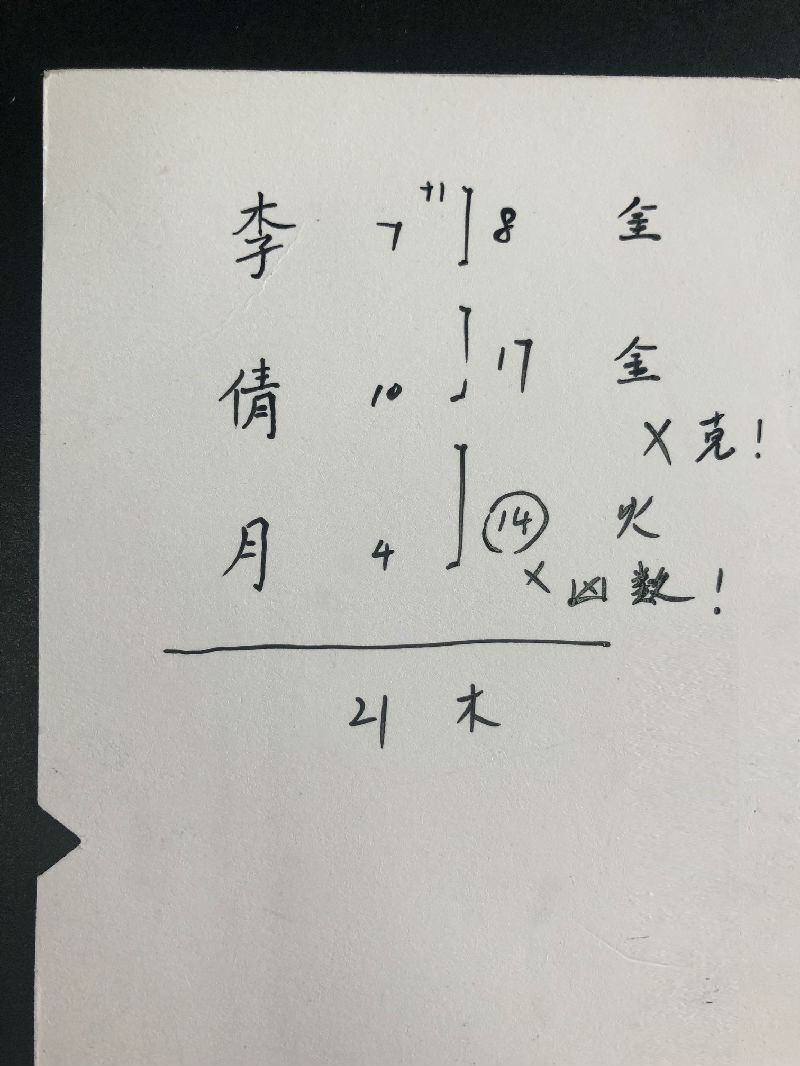 李 7 +1 8 金
倩 10 17 金
X 克!
月 4 14 火
X 凶数!
21 木